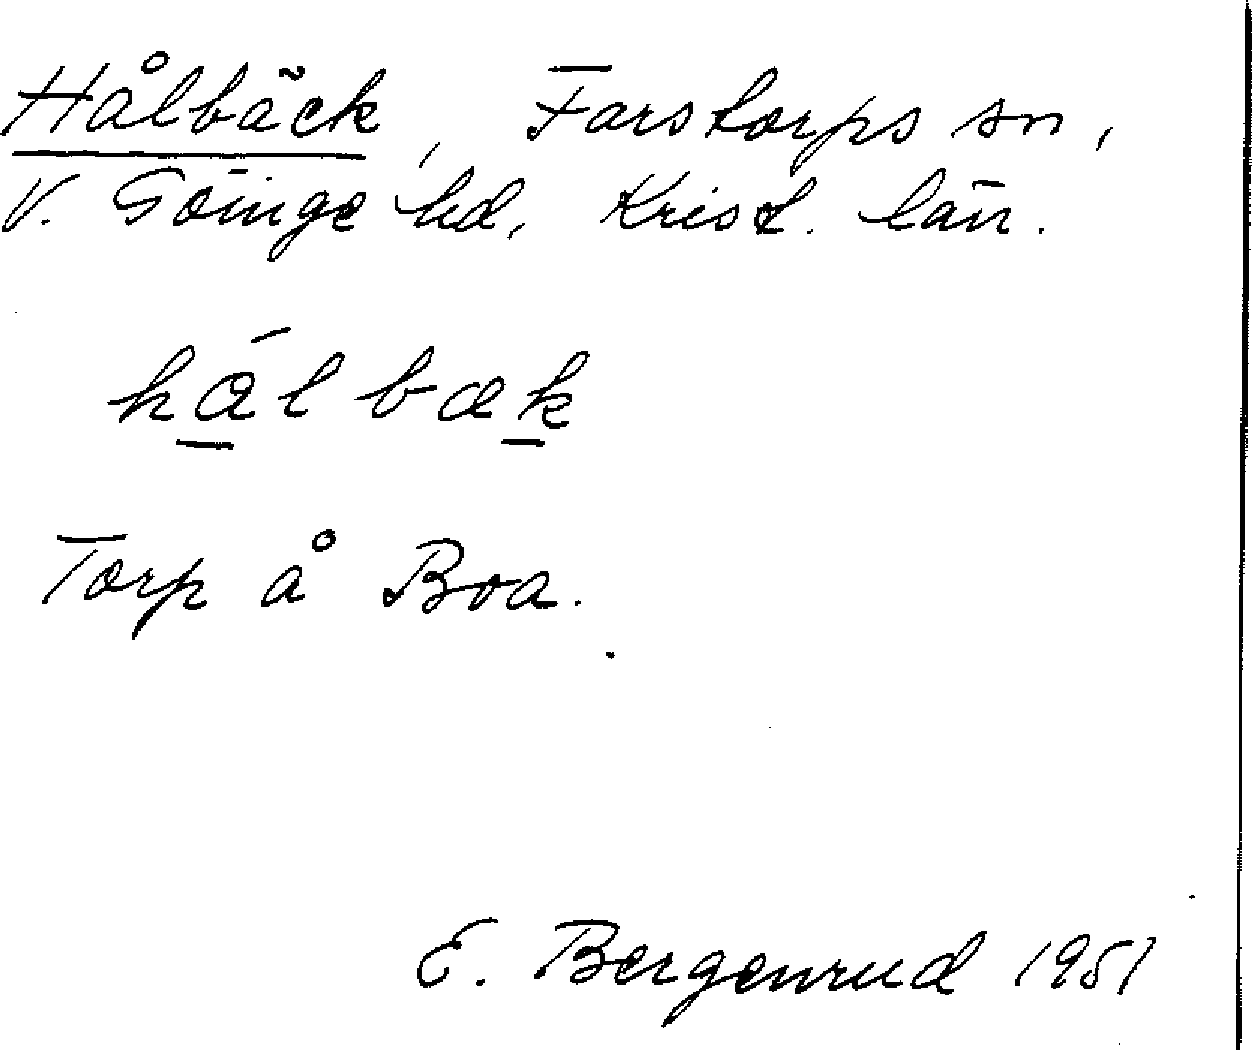 Hålbäck, Farstorps sn,
V. Göinge hd, Krist. län.
há̱lbæḵ
Torp å Boa.
E. Bergenrud 1951